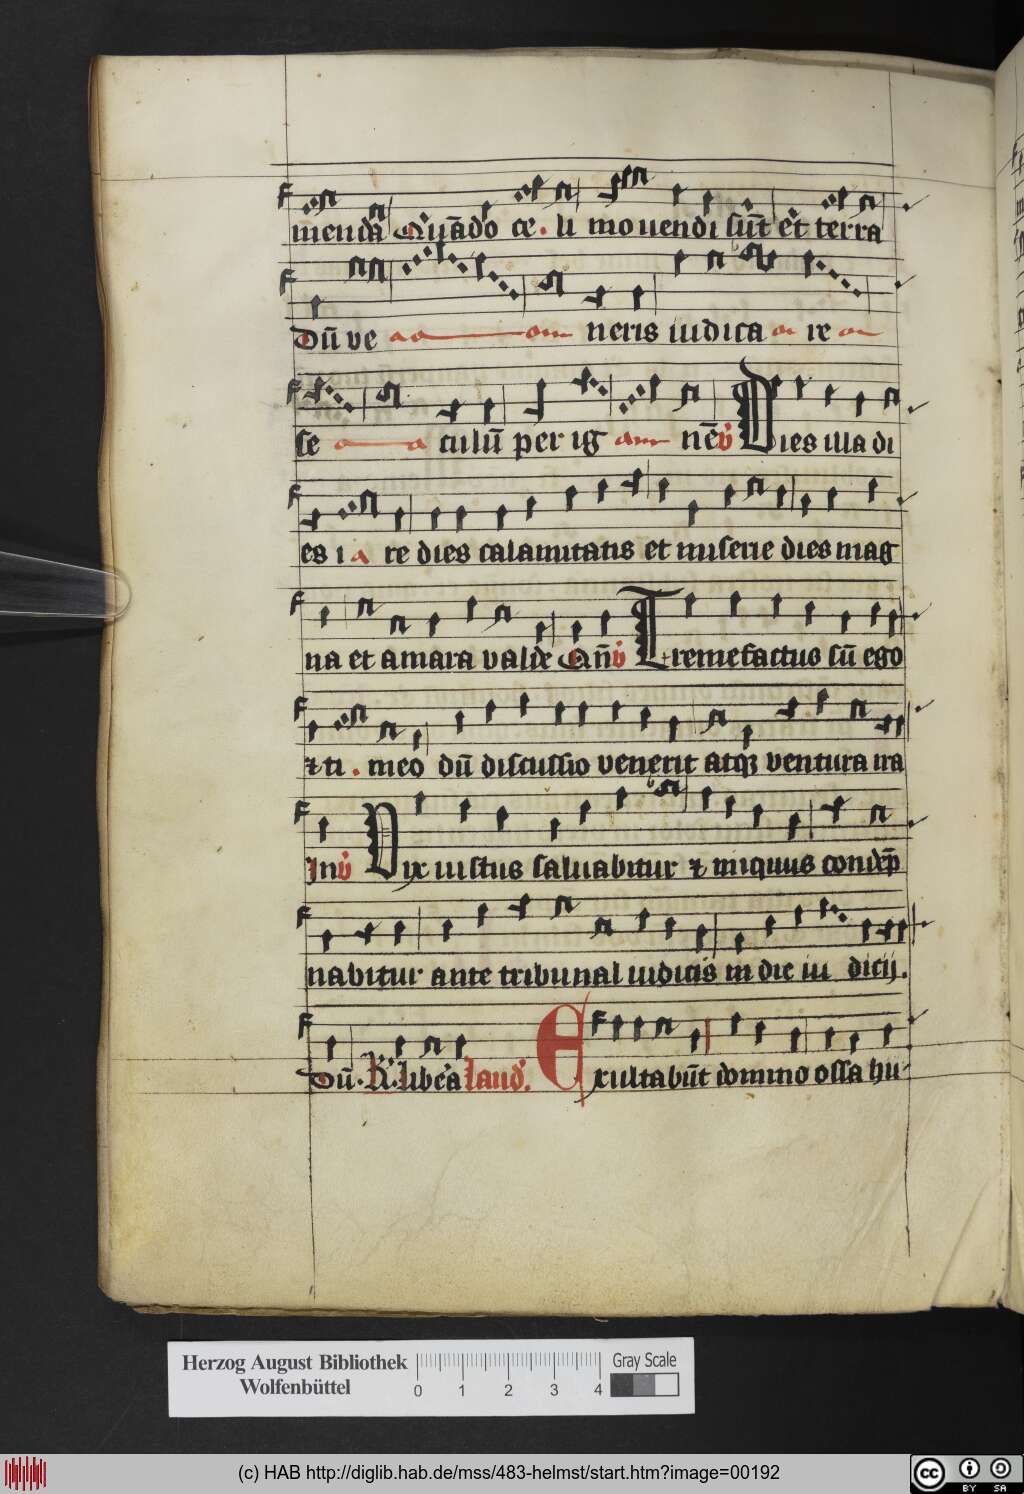 menda Quādo ce. li mouendi sūt et terra
Dū ve neris iudica re
se culū per ig nēv̄ Dies illa di
es i re dies calamitatis et miserie dies mag
na et amara valde Qn̄v̄ Tremefactus sū ego
⁊ ti . meo dū discussio venerit atqꝫ ventura ira
Jnv̄ Vix iustus saluabitur ⁊ iniquus condēp
nabitur ante tribunal iudicis in die iu dicij.
Dū. R̄. libe'a laud'. Exultabūt domino ossa hu
Herzog August Bibliothek
Wolfenbüttel
0 1 2 3 4
Gray Scale
(c) HAB http://diglib.hab.de/mss/483-helmst/start.htm?image=00192
cc BY SA